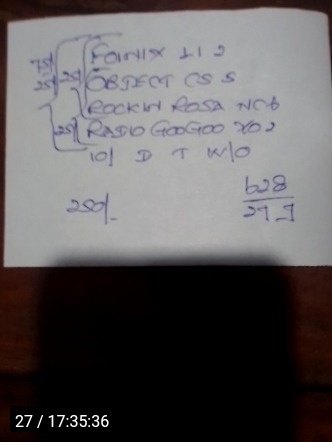 75/ 25/ 25/ FONIX 112
OBJECT CS 5
ROCKIN ROSA NCB
25/ RADIO GOOGOO XO2
10/ D T W/O
250/-
628
27
27 / 17:35:36